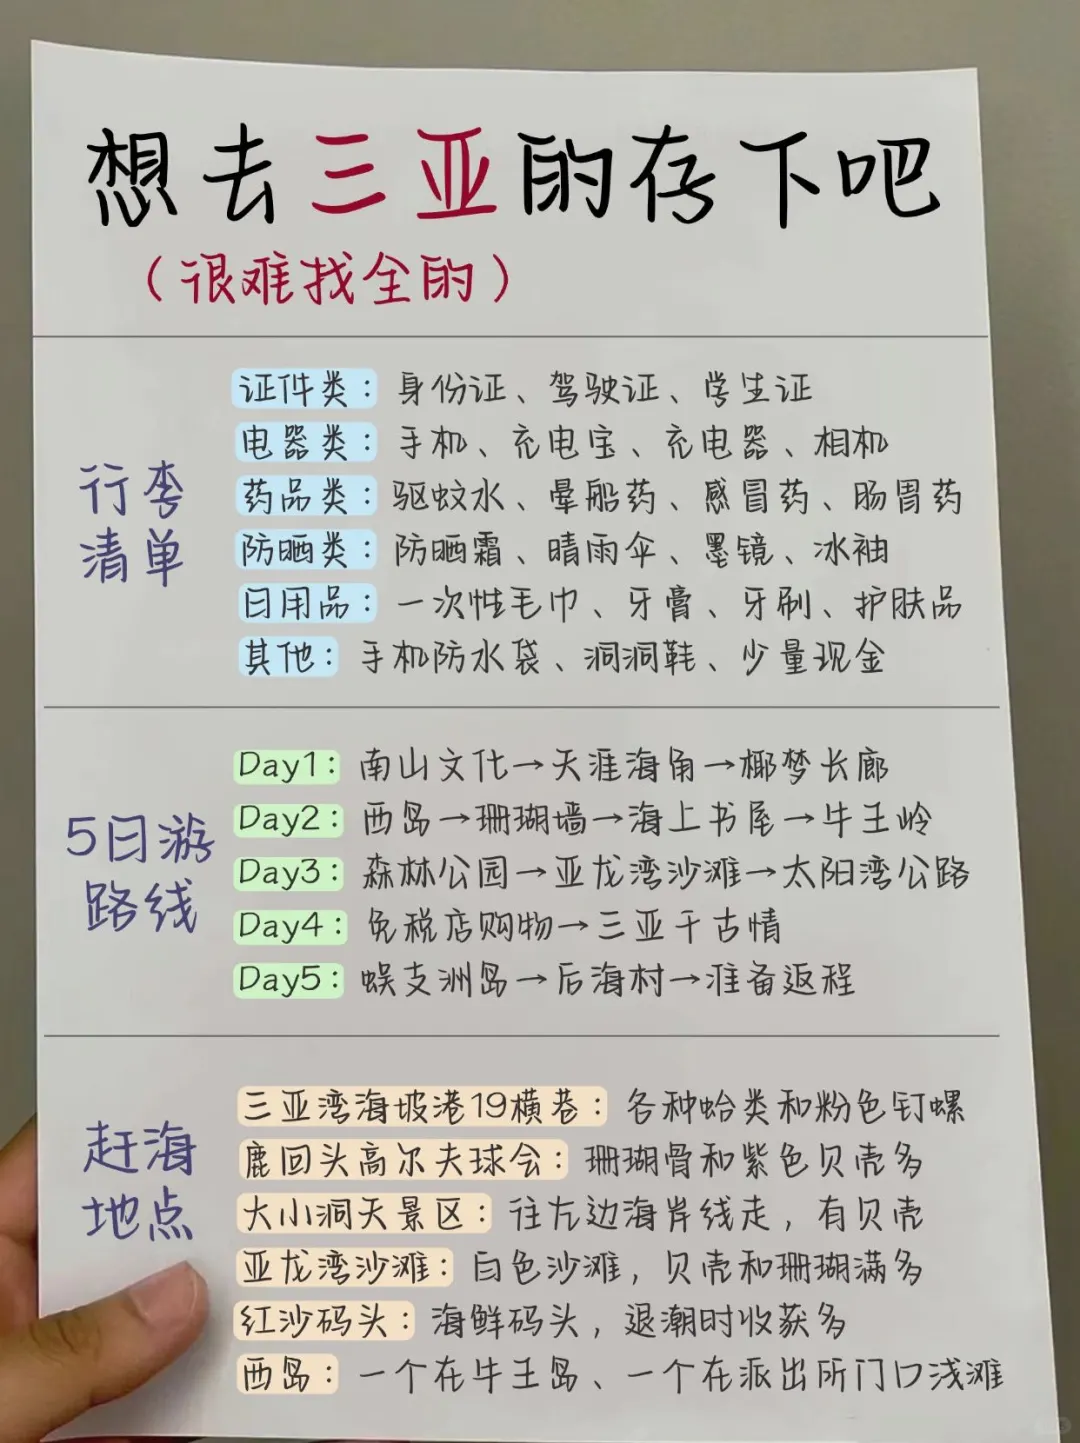 想去三亚的存下吧
（很难找全的）
行李清单
证件类：身份证、驾驶证、学生证
电器类：手机、充电宝、充电器、相机
药品类：驱蚊水、晕船药、感冒药、肠胃药
防晒类：防晒霜、晴雨伞、墨镜、冰袖
日用品：一次性毛巾、牙膏、牙刷、护肤品
其他：手机防水袋、洞洞鞋、少量现金
5日游路线
Day1：南山文化→天涯海角→椰梦长廊
Day2：西岛→珊瑚墙→海上书屋→牛王岭
Day3：森林公园→亚龙湾沙滩→太阳湾公路
Day4：免税店购物→三亚千古情
Day5：蜈支洲岛→后海村→准备返程
赶海地点
三亚湾海坡港19横巷：各种蛤类和粉色钉螺
鹿回头高尔夫球会：珊瑚骨和紫色贝壳多
大小洞天景区：往左边海岸线走，有贝壳
亚龙湾沙滩：白色沙滩，贝壳和珊瑚满多
红沙码头：海鲜码头，退潮时收获多
西岛：一个在牛王岛、一个在派出所门口浅滩